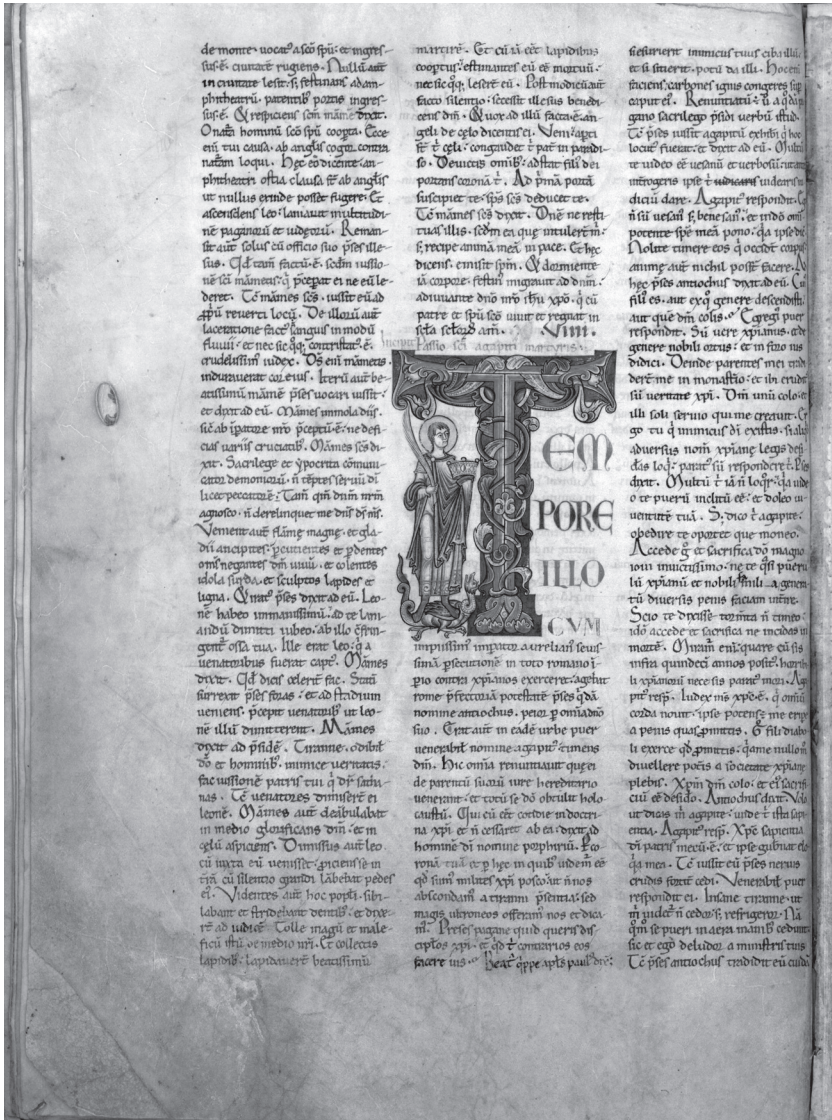 de monte. vocat᷒ a sc̄o sp̄u: et ingres-
sus. ē. civitatē rugiens. Nullū aut̄
in civitate lesit. s; festinans ad am-
phitheatrū. patentib; portis ingres-
sus. ē. Et respiciens sc̄m mamē dixit.
hominū sc̄o sp̄u Ecce
ei tui causa. ab anglis cogor contra
natām loqui. Hec eo dicente. an-
phitheatri ostia clausa st̄ ab anglis
ut nullus exinde posset fugere. Et
ascendens leo. laniavit multitudi
nē paganorū et iudeorū. Reman-
sit aut̄ solus cū officio suo p̄ses ille-
sus. Qd̄ tam̄ factū. ē. scdm̄ iussio
nē sc̄i mametis. q̄ p̄cepat ei ne eū le-
deret. Tc̄ māmes sc̄s. iussit eū ad
p̄p̄u reverti locū. De illorū aut̄
laceratione fact᷒ sanguis in modū
fluvii. et nec sic q; contristat᷒. ē.
crudelissim᷒ iudex. Ds̄ eni mametis
induraverat cor eius. Iterū aut̄ be-
atissimū mamē p̄ses vocari iussit.
et dixit ad eū. Māmes immola diis.
sic̄ ab ip̄atore nr̄o p̄ceptū. ē. ne defi-
cias variis cruciatib;. Māmes sc̄s di-
xit. Sacrilege et ypocrita cōmuni-
cator demoniorū. n̄ tēptes servū dī
licet peccatorē. Tam̄ qm̄ dn̄m nr̄m
agnosco. n̄ derelinquet me dn̄s ds̄ ms̄.
Vement aut̄ flāme magne. et gla-
dii ancipites. p̄cutientes et p̄dentes
om̄s negantes dm̄ vivū. et colentes
idola surda. et sculptos lapides et
ligna. Irat᷒ p̄ses dixit ad eū. Leo-
nē habeo inmanissimū. ad te lani-
andū dimitti iubeo. ab illo c̄frin-
gent᷒ ossa tua. Ille erat leo. q̄ a
venatoribus fuerat capt᷒. Māmes
dixit. Qd̄ dicis celerit̄ fac. Statī
surrexit p̄ses foras. et ad stadium
veniens. p̄cepit venatorib; ut leo-
nē illū dimitterent. Māmes
dixit ad p̄sidē. Tiranne. odibil᷒
dō et hominib;. inimice veritatis.
fac iussionē patris tui q̄ dr̄ satha-
nas. Tc̄ venatores dimiserē ei
leonē. Māmes aut̄ deābulabat
in medio glorificans dm̄. et in
celū aspiciens. Dimissus aut̄ leo.
cū iuxta eū venisset. p̄iciens se in
tr̄ā cū silentio grandi labebat pedes
ei᷒. Videntes aut̄ hoc popl̄i. sibi-
labant et stridebant dentib;. et dixe-
rt̄ ad iudicē. Tolle magū et male-
ficū istū de medio nr̄i. Et collectis
lapidib;. lapidavert̄ beatissimū
martirē. Et cū iā eēt lapidibus
coopt᷒us. estimantes eū eē mortuū.
nec sic q; lesert̄ eū. Post modicū aut̄
facto silentio. secessit illesus bene-
cens dm̄. Et vox ad illū facta. ē. an-
geli de celo dicentis ei. Veni. apti
st̄ t̄ celi. congaudet t̄ pat᷒ in paradi
so. Devictis omib;. adstat fili᷒ dei
portans coronā t̄. Ad p̄mā portā
suscipiet te. sp̄s sc̄s deducet te.
Tc̄ māmes sc̄s dixit. Dn̄e ne resti
tuas illis. scdm̄ ea que intulerē m̄.
s; recipe animā meā in pace. Et hec
dicens. emisit sp̄m. Et dormiente
iā corpore. festin᷒ migravit ad dn̄m.
adiuvante dn̄o nr̄o ih̄u xp̄o. q̄ cū
patre et sp̄u sc̄o vivit et regnat in
sc̄la sclor̄. am̄. .VIIII.
Incipit Passio sc̄i agapiti martyris.
TEM
PORE
ILLO
CVM
impiissim᷒ impator aurelian᷒ sevis-
simā p̄secutionē in toto romano ī-
p̄io contra xp̄ianos exerceret. agebat
rome p̄fectoria potestatē p̄ses q̄dā
nomine antiochus. peior p̄ om̄ia dn̄o
suo. Erat aut̄ in eadē urbe puer
venerabil᷒ nomine agapit᷒. timens
dm̄. Hic om̄ia renuntiavit que ei
de parentū suorū iure hereditario
venerant. et totū se dō obtulit holo-
caustū. Qui cū eēt cotidie in doctri
na xp̄i. et n̄ cessaret ab ea. dixit ad
hominē dī nomine porphiriū. P̄ co-
ronā tuā et p̄ hec in quib; videm᷒ eē
qd̄ sum᷒ milites xp̄i posco. ut n̄ nos
abscondam᷒ a tiranni p̄sentia. sed
magis ultroneos offeram᷒ nos et dica
m᷒. Preses pagane quid queris dis-
cip̄los xp̄i. et qd̄ t̄ contrarios eos
facere vis. Beat᷒ q̄ppe apl̄s paul᷒ dic̄.
si esurierit inimicus tuus ciba illū.
et si sitierit. potū da illi. Hoc eni
faciens. carbones ignis congeres sup̄
caput ei᷒. Renuntiatū. ē. a q̄dā pa
gano sacrilego p̄sidi verbū istud.
Tc̄ p̄ses iussit agapitū exhib̄i q̄ hec
locut᷒ fuerat. et dixit ad eū. Multū
te video eē vesanū et verbosū. ut an
introgeris ipse t̄ videaris iu
diciū dare. Agapit᷒ respondit.
n̄ sū vesan᷒. s; bene san᷒. et in dō om̄i
potente spē meā pono. q̄a ipse dix̄
Nolite timere eos q̄ occidt̄ corpus
animę aut̄ nichil posst̄ facere. Ad
hęc p̄ses antiochus dixit ad eū. Cui᷒
fili᷒ es. aut ex quo genere descendisti.
aut que dm̄ colis. Egregi᷒ puer
respondit. Sū vere xp̄ianus. et de
genere nobili ortus. et in foro ius
didici. Deinde parentes mei tradi
dert̄ me in monast̄io. et ibi erudit᷒
sū veritatē xp̄i. Dm̄ unū colo. et
illi soli servio qui me creavit. Er
go tu q̄ inimicus dī existis. si aliq̄
adversus nom̄ xp̄iane legis defi
das loq̄. parat᷒ sū respondere t̄. P̄ses
dixit. Multū t̄ iā n̄ loq̄r. q̄a vide
o te puerū inclitū eē. et doleo iu-
ventute tuā. S; dico t̄ agapite.
obedire te oportet que moneo.
Accede g̊ et sacrifica dō magno
iovi invictissimo. ne te q̄si pueru
lū xp̄ianū et nobili simili agenera
tū diversis penis faciam int̄ire.
Scio te dixisse tormt̄a n̄ timeo.
ido accede et sacrifica ne incidas in
mortē. Miram᷒ eni. quare cū sis
infra quindeci annos posit᷒. horrib
li xp̄ianorū nece sis parat᷒ mori. Aga
pit᷒ resp̄. Iudex m᷒ xp̄c. ē. q̄ om̄iū
corda novit. ipse potens. ē. me eripe
a penis quas p̄mittis. Q̄ fili diabo
li exerce qd̄ p̄mittis. q̄a me nullom̊
divellere potis a societate xp̄iane
plebis. Xp̄m dm̄ colo. et ei᷒ sacrifi
ciū eē desido. Antiochus dixit. Volo
ut dicas m̄ agapite. unde t̄ ista sapi
entia. Agapit᷒ resp̄. Xp̄c sapientia
dī patris mecū. ē. et ipse gubnat eloq̄
q̄a mea. Tc̄ iussit eū p̄ses nervis
crudis fortit̄ cedi. Venerabil᷒ puer
respondit ei. Insane tiranne. ut
m̄ videt᷒ n̄ cedor. s; refrigeror. Nā
q̄m̊ se pueri in aera manib; cedunt
sic et ego deludor a ministris tuis
Tc̄ p̄ses antiochus tradidit eū cuidā